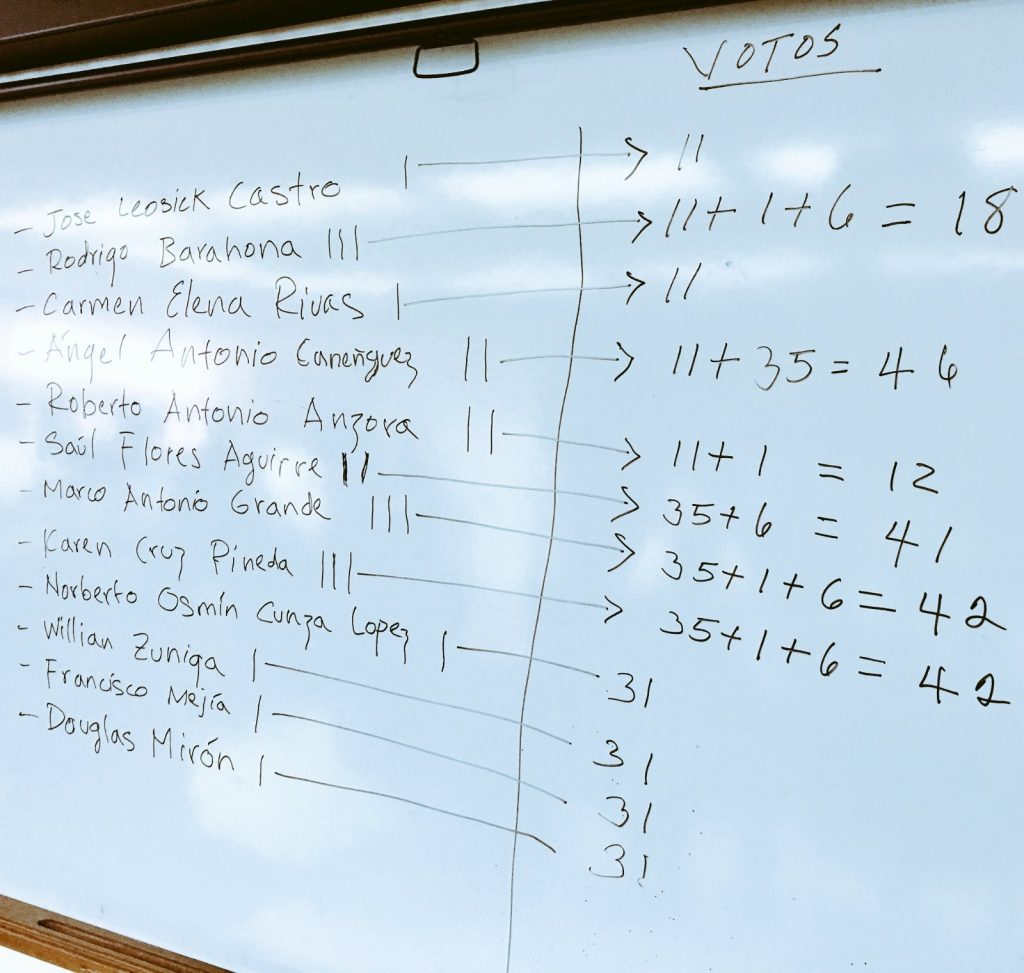 VOTOS
- Jose Leosick Castro | → 11
- Rodrigo Barahona ||| → 11+1+6 = 18
- Carmen Elena Rivas | → 11
- Ángel Antonio Canenguez || → 11+35 = 46
- Roberto Antonio Anzora || → 11+1 = 12
- Saúl Flores Aguirre || → 35+6 = 41
- Marco Antonio Grande ||| → 35+1+6 = 42
- Karen Cruz Pineda ||| → 35+1+6 = 42
- Norberto Osmín Cunza Lopez | 31
- Willian Zuniga | 31
- Francisco Mejía | 31
- Douglas Mirón | 31